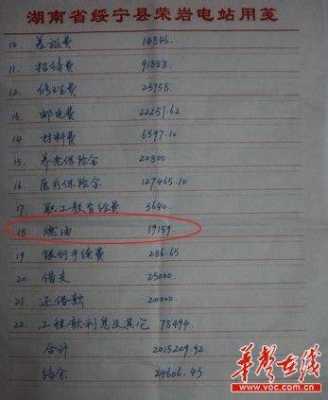 湖南省绥宁县荣岩电站用笺
10. 差旅费
11. 招待费 91888.
12. 修理费 25958.
13. 邮电费 22257.62
14. 材料费 6597.10
15. 养老保险金 20800
16. 医疗保险金 127465.10
17 职工教育经费 3640.
18 燃油 19159
19 银行手续费 286.65
20 借支 25000
21 还借款 20000
22. 工程款利息及其它 78494.
合计 2015209.92
结余 24606.45
华声在线
www.voc.com.cn